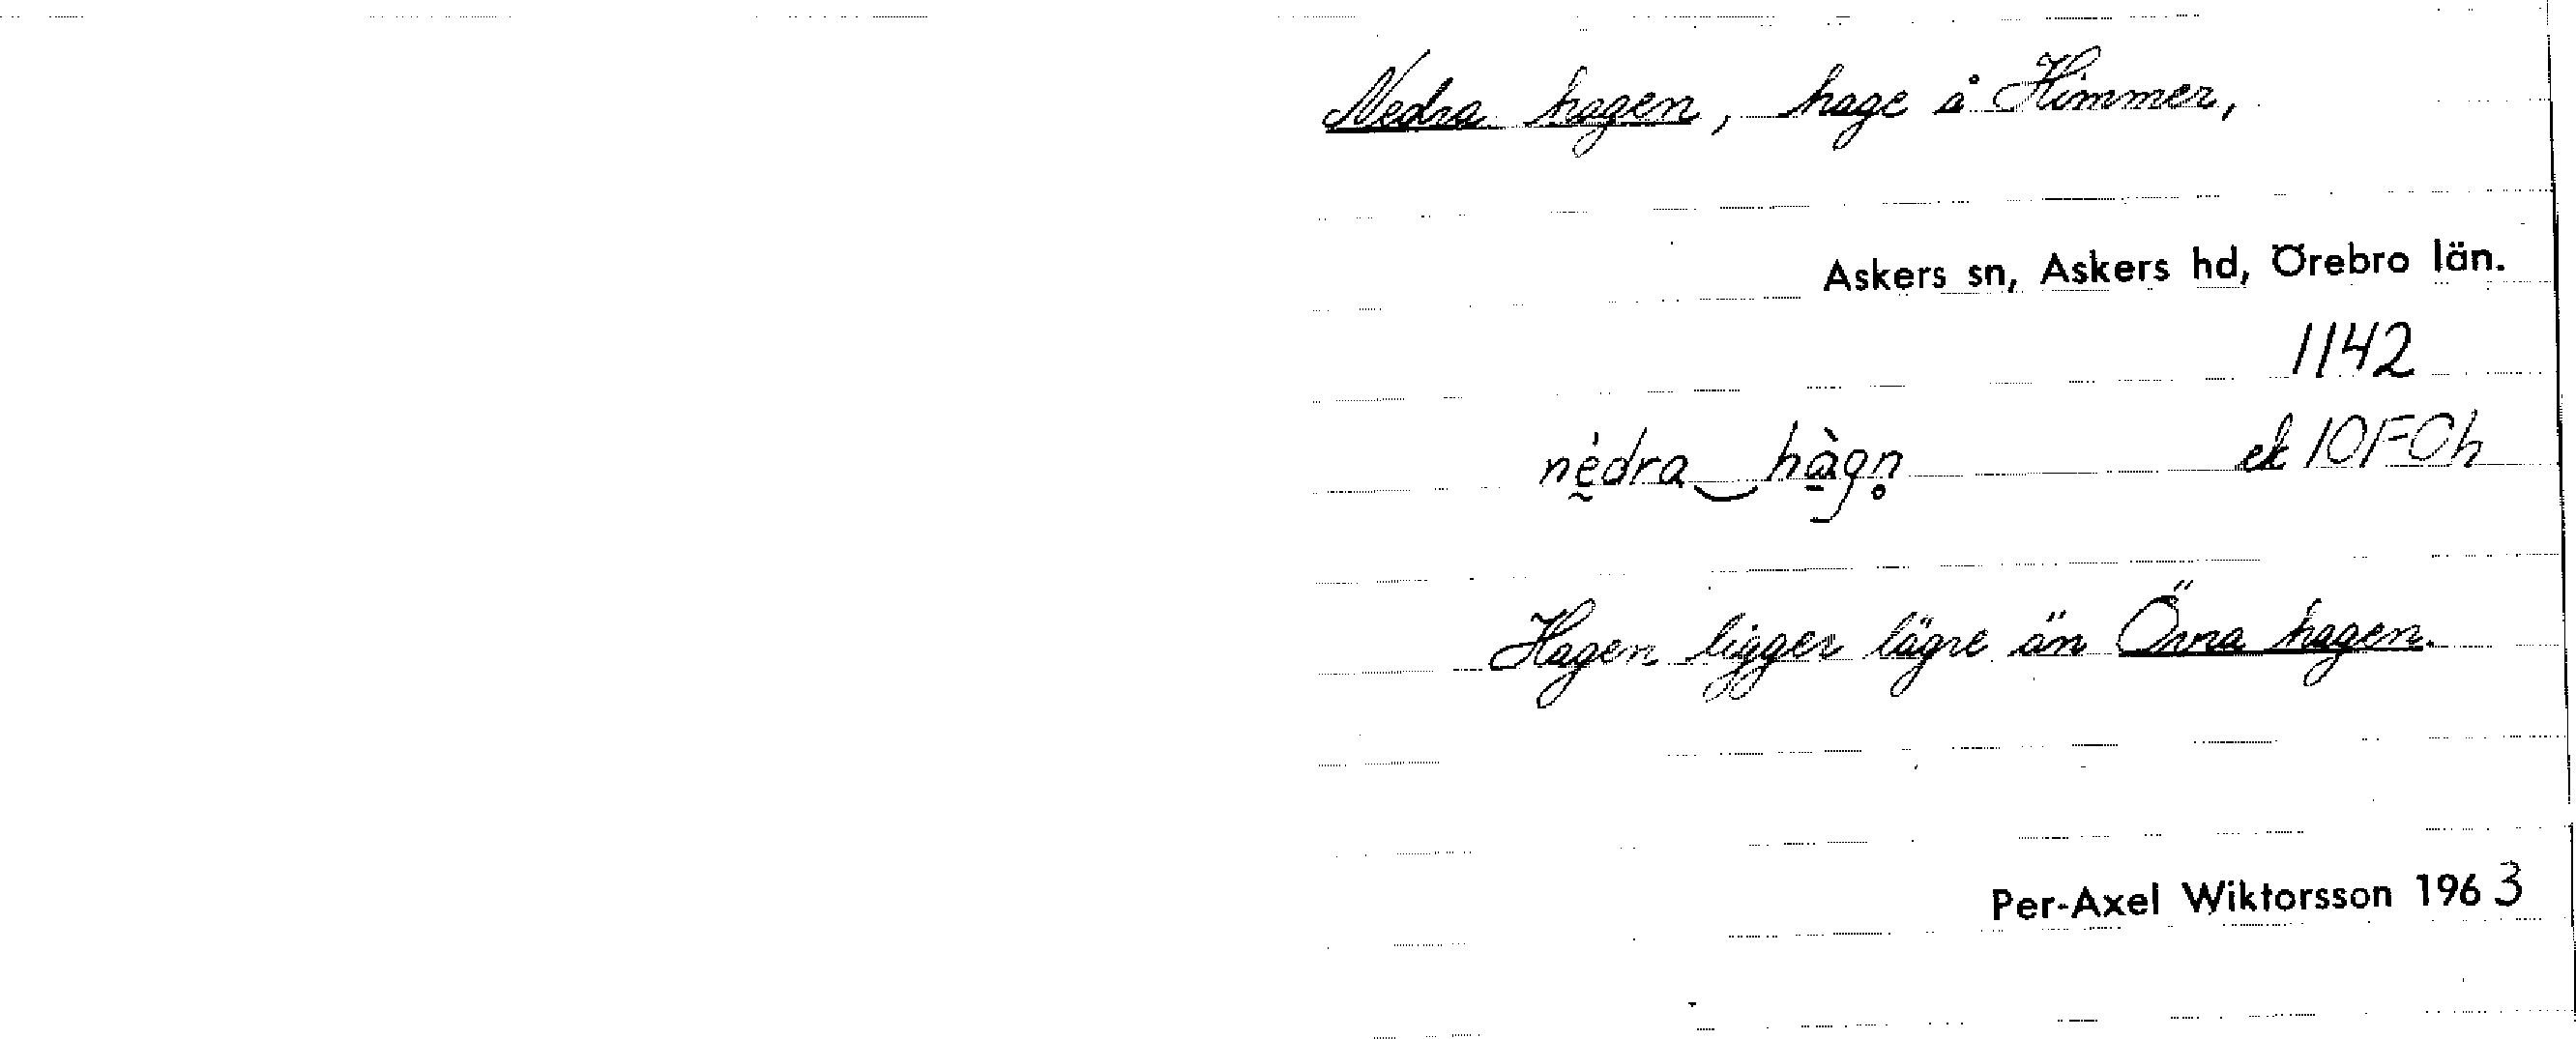 Nedra hagen, hage å Himmer,
Askers sn, Askers hd, Örebro län.
1142
nèdra‿hàgn̥ ek 10F0h
Hagen ligger lägre än Övra hagen.
Per-Axel Wiktorsson 1963